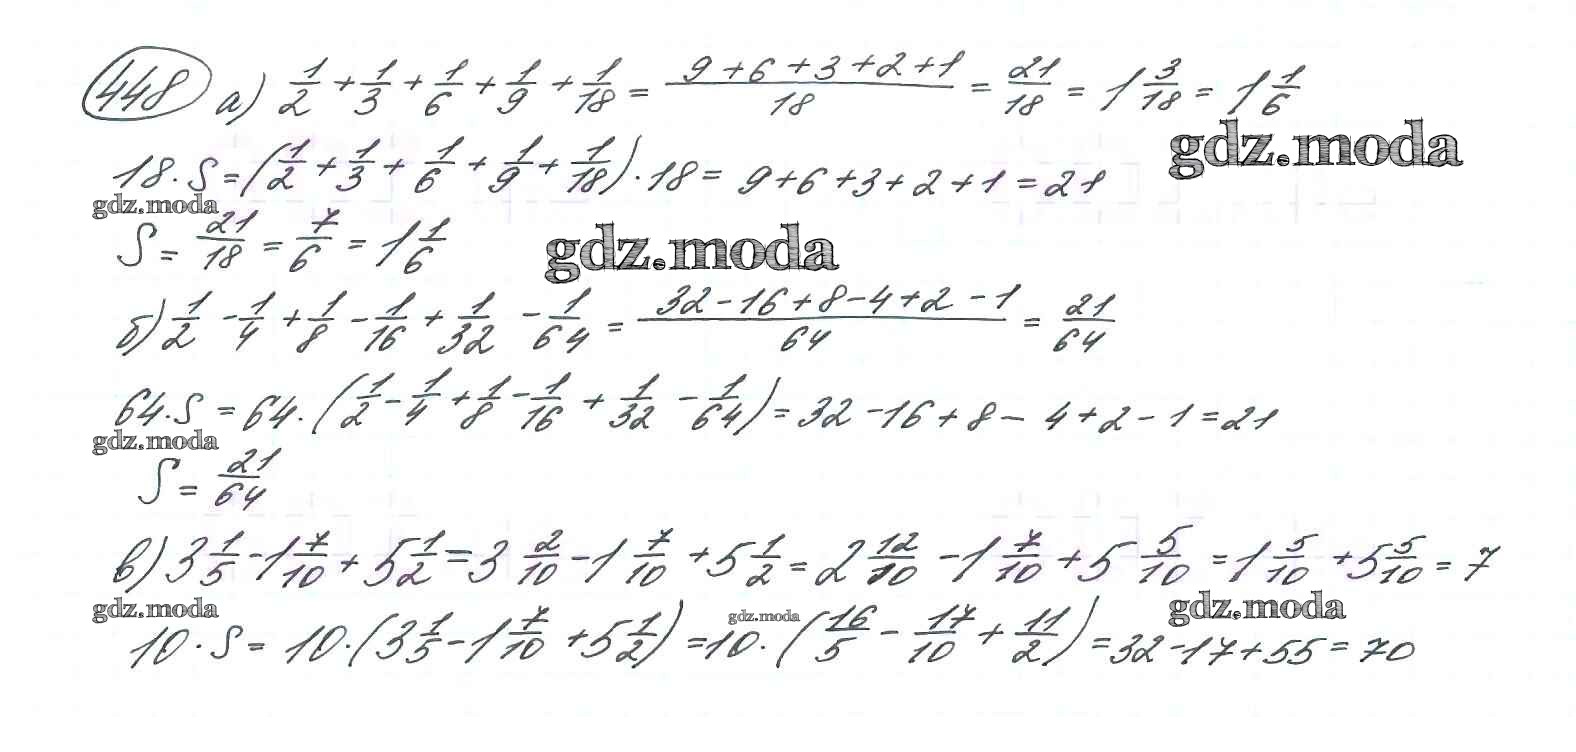 448 а) 1/2 + 1/3 + 1/6 + 1/9 + 1/18 = (9+6+3+2+1)/18 = 21/18 = 1 3/18 = 1 1/6
gdz.moda
18·S = (1/2 + 1/3 + 1/6 + 1/9 + 1/18)·18 = 9+6+3+2+1 = 21
gdz.moda
S = 21/18 = 7/6 = 1 1/6
gdz.moda
б) 1/2 - 1/4 + 1/8 - 1/16 + 1/32 - 1/64 = (32-16+8-4+2-1)/64 = 21/64
64·S = 64·(1/2 - 1/4 + 1/8 - 1/16 + 1/32 - 1/64) = 32-16+8-4+2-1 = 21
gdz.moda
S = 21/64
в) 3 1/5 - 1 7/10 + 5 1/2 = 3 2/10 - 1 7/10 + 5 1/2 = 2 12/10 - 1 7/10 + 5 5/10 = 1 5/10 + 5 5/10 = 7
gdz.moda gdz.moda gdz.moda
10·S = 10·(3 1/5 - 1 7/10 + 5 1/2) = 10·(16/5 - 17/10 + 11/2) = 32-17+55 = 70